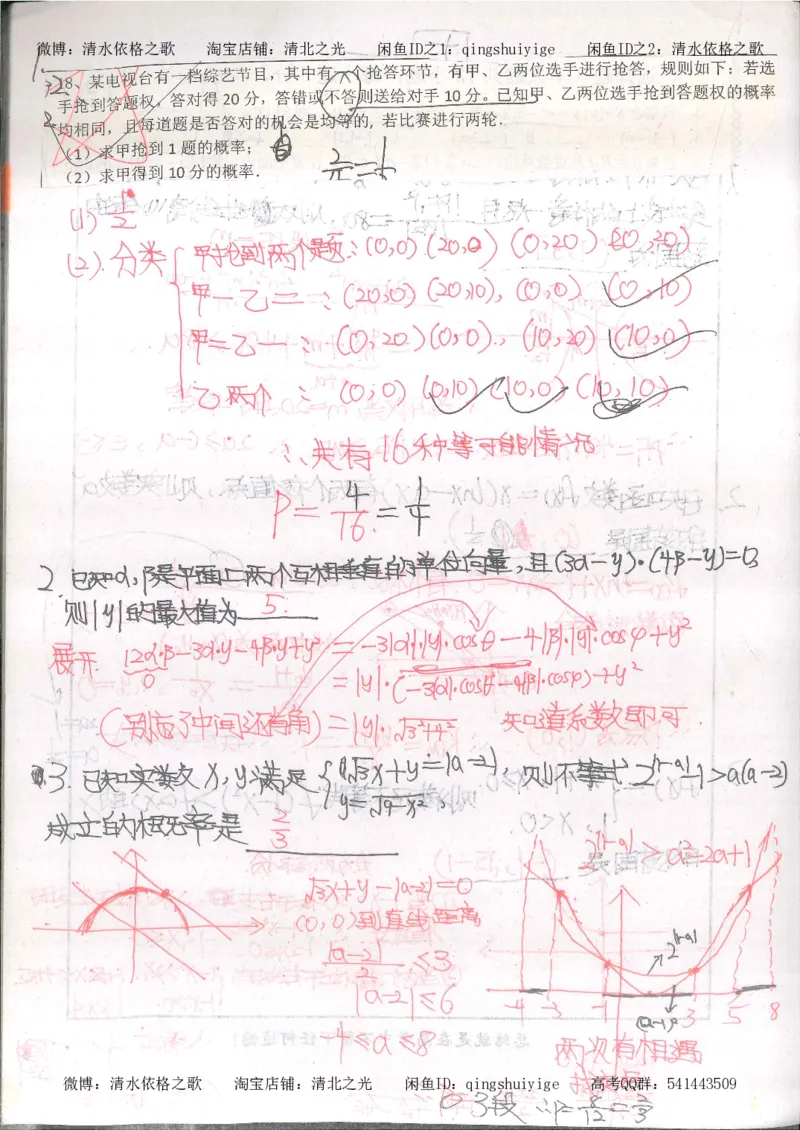 微博：清水依格之歌 淘宝店铺：清北之光 闲鱼ID之1：qingshuiyige 闲鱼ID之2：清水依格之歌
18、某电视台有一档综艺节目，其中有一个抢答环节，有甲、乙两位选手进行抢答，规则如下：若选
手抢到答题权，答对得 20 分，答错或不答则送给对手 10 分。已知甲、乙两位选手抢到答题权的概率
均相同，且每道题是否答对的机会是均等的, 若比赛进行两轮．
（1）求甲抢到 1 题的概率；
（2）求甲得到 10 分的概率．
(1) 1/2
(2). 分类
甲抢到两个题：(0,0) (20,0) (0,20) (20,20)
甲一乙二：(20,0) (20,10), (0,0) (0,10)
甲二乙一：(0,20) (0,0), (10,20) (10,0)
乙两个：(0,0) (0,10) (10,0) (10,10)
∴共有16种等可能情况
P=4/16=1/4
2. 已知α,β是平面上两个互相垂直的单位向量,且(3α-γ)·(4β-γ)=0,
则|γ|的最大值为 5.
展开. 12α·β-3α·γ-4β·γ+γ²=-3|α|·|γ|·cosθ-4|β|·|γ|·cosφ+γ²
0
=|γ|·(-3|α|·cosθ-4|β|·cosφ)+γ²
(别忘了中间还有角)=|γ|·√3²+4² 知道系数即可.
3. 已知实数 x,y满足{√3x+y=|a-2|, y=√9-x², 则不等式2^|1-a|-1>a(a-2)
成立的概率是 2/3
√3x+y-|a-2|=0
(0,0)到直线距离
|a-2|/2≤3
|a-2|≤6
-4≤a≤8
2^|1-a|>a²-2a+1
2^|1-a|
(a-1)²
-4 -3 -1 3 5 8
两次有相遇
3段 ∴P=8/12=2/3
微博：清水依格之歌 淘宝店铺：清北之光 闲鱼ID：qingshuiyige 高考QQ群：541443509